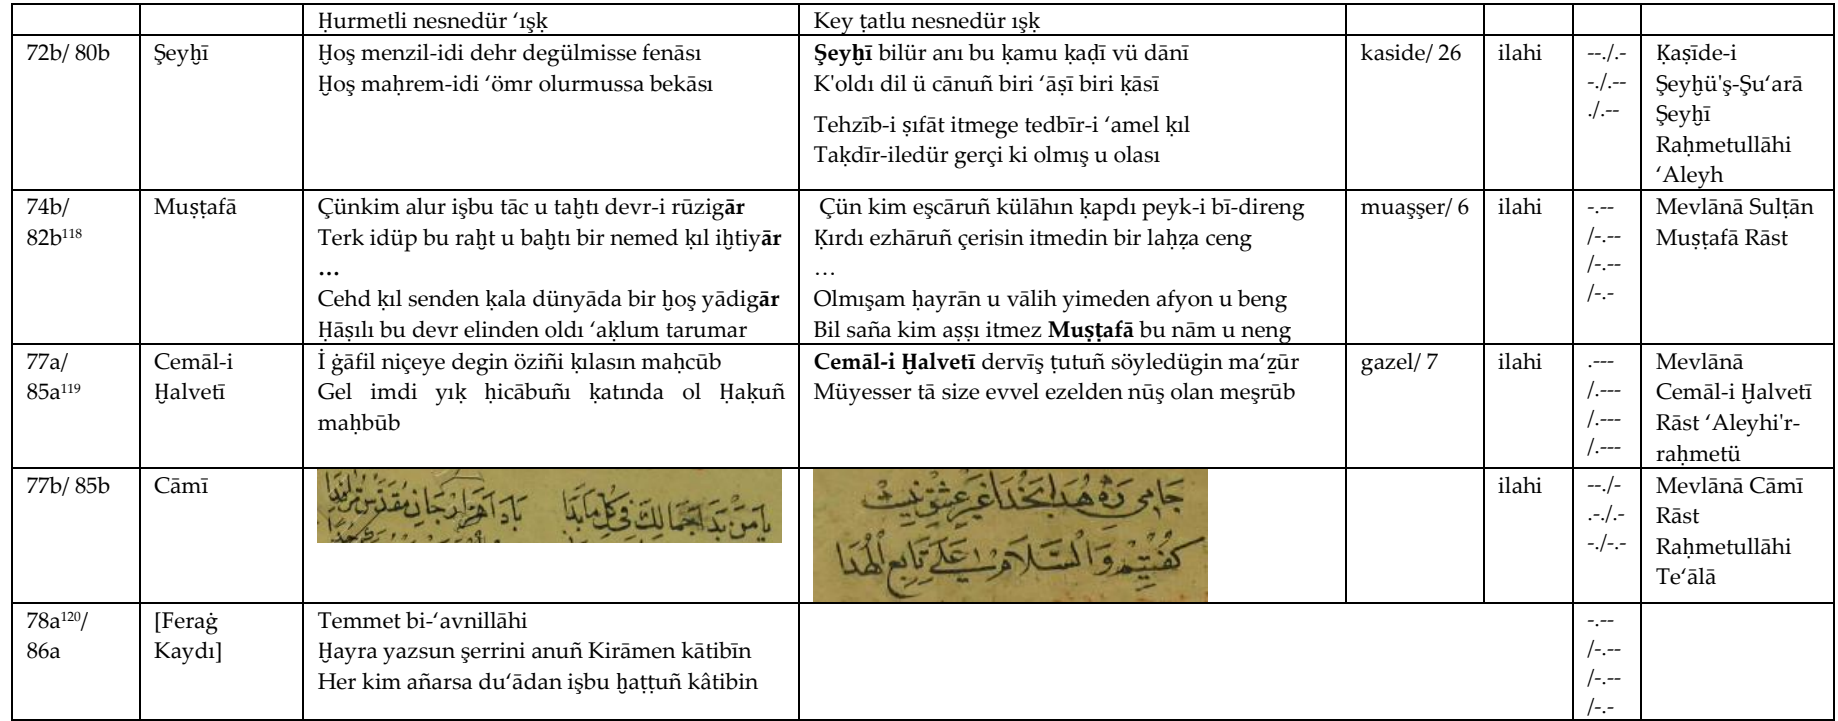 Ḥurmetli nesnedür ‘ışḳ
Key ṭatlu nesnedür ışḳ
72b/ 80b
Şeyḫī
Ḫoş menzil-idi dehr degülmisse fenāsı
Ḫoş maḥrem-idi ‘ömr olurmussa bekāsı
Şeyḫī bilür anı bu ḳamu ḳaḍī vü dānī
K'oldı dil ü cānuñ biri ‘āṣī biri ḳāsī
Tehzīb-i ṣıfāt itmege tedbīr-i ‘amel ḳıl
Taḳdīr-iledür gerçi ki olmış u olası
kaside/ 26
ilahi
--./.-
-./.--
./.--
Ḳaṣīde-i
Şeyḫü'ş-Şu‘arā
Şeyḫī
Raḥmetullāhi
‘Aleyh
74b/
82b118
Muṣṭafā
Çünkim alur işbu tāc u taḫtı devr-i rūzigār
Terk idüp bu raḫt u baḫtı bir nemed ḳıl iḫtiyār
…
Cehd ḳıl senden ḳala dünyāda bir ḫoş yādigār
Ḥāṣılı bu devr elinden oldı ‘aḳlum tarumar
Çün kim eşcāruñ külāhın ḳapdı peyk-i bī-direng
Ḳırdı ezhāruñ çerisin itmedin bir laḥẓa ceng
…
Olmışam ḥayrān u vālih yimeden afyon u beng
Bil saña kim aṣṣı itmez Muṣṭafā bu nām u neng
muaşşer/ 6
ilahi
-.--
/-.--
/-.--
/-.-
Mevlānā Sulṭān
Muṣṭafā Rāst
77a/
85a119
Cemāl-i
Ḫalvetī
İ ġāfil niçeye degin öziñi ḳılasın maḥcūb
Gel imdi yıḳ ḥicābuñı ḳatında ol Ḥaḳuñ
maḥbūb
Cemāl-i Ḫalvetī dervīş ṭutuñ söyledügin ma‘ẕūr
Müyesser tā size evvel ezelden nūş olan meşrūb
gazel/ 7
ilahi
.---
/.---
/.---
/.---
Mevlānā
Cemāl-i Ḫalvetī
Rāst ‘Aleyhi'r-
raḥmetü
77b/ 85b
Cāmī
يا من بدا جمالك في كل ما بدا بادا هزار جان مقدس ترا فدا
جامي ره هدا بخدا غير عشق نيست
كفتيم والسلام علي تابع الهدا
ilahi
--./-
.-./.-
-./-.-
Mevlānā Cāmī
Rāst
Raḥmetullāhi
Te‘ālā
78a120/
86a
[Feraġ
Kaydı]
Temmet bi-‘avnillāhi
Ḫayra yazsun şerrini anuñ Kirāmen kātibīn
Her kim añarsa du‘ādan işbu ḫaṭṭuñ kâtibin
-.--
/-.--
/-.--
/-.-